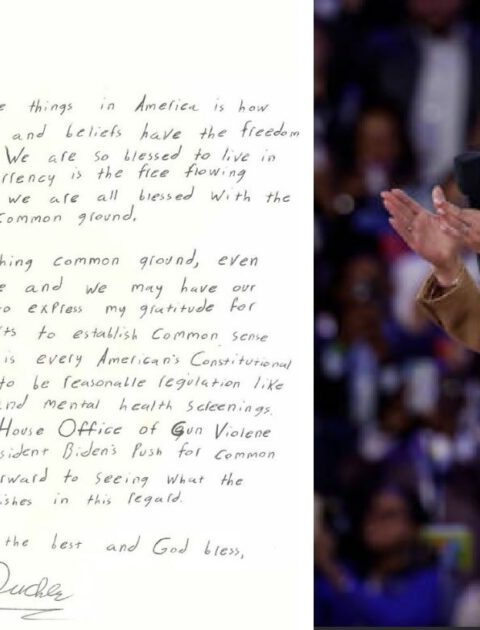 e things in America is how
and beliefs have the freedom
We are so blessed to live in
rrency is the free flowing
we are all blessed with the
common ground.
hing common ground, even
e and we may have our
o express my gratitude for
ts to establish common sense
is every American's Constitutional
to be reasonable regulation like
nd mental health screenings.
House Office of Gun Violene
sident Biden's Push for Common
rward to seeing what the
ishes in this regard.
the best and God bless,